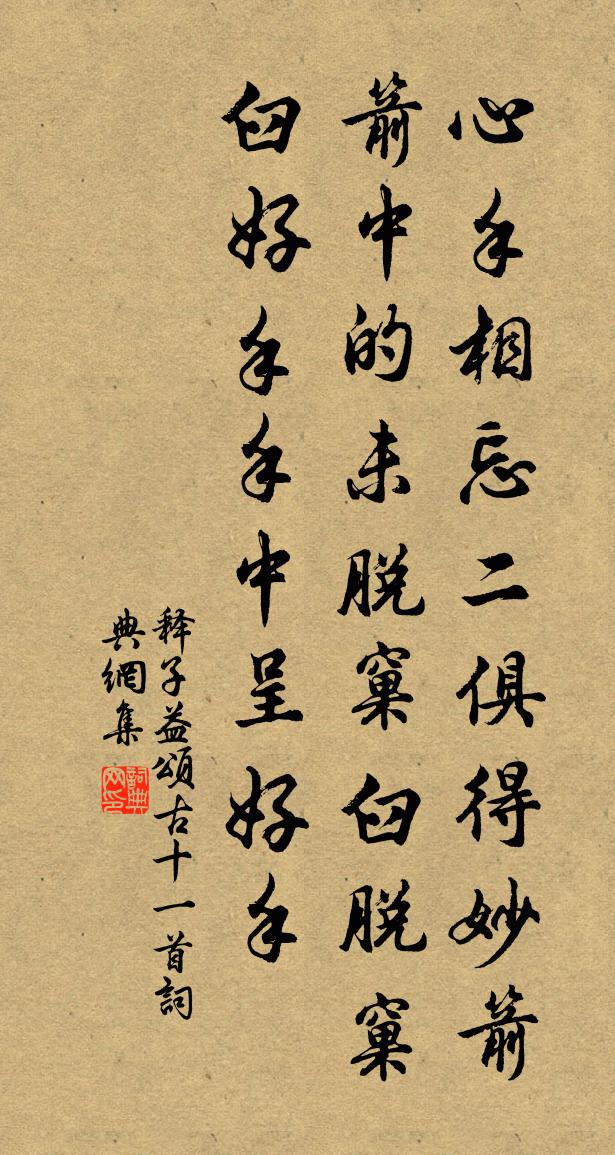 心手相忘二俱得妙箭
箭中的未脱窠臼脱窠
臼好手手中呈好手
释子益頌古十一首詞
典網集
詞典
网印